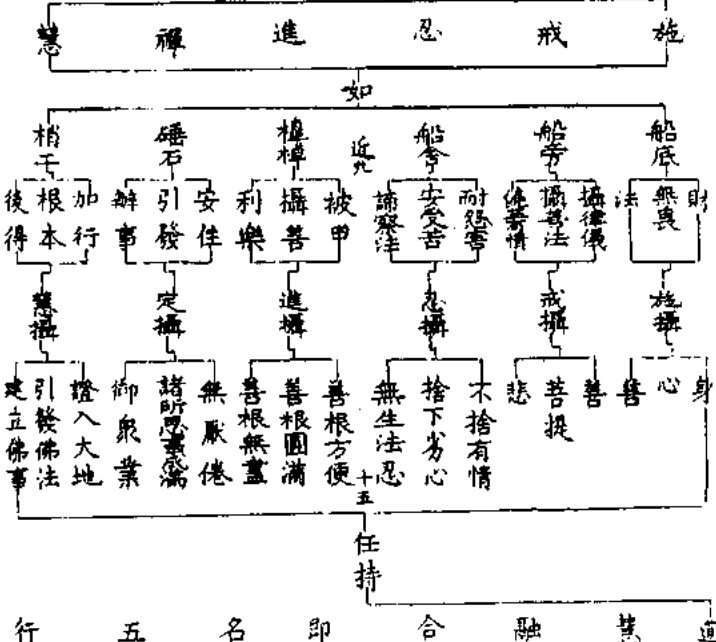 施 戒 忍 進 禪 慧
如
船底 船旁 船舍 近九 植棹 硾石 梢干
財 無畏 法
攝律儀 攝善法 情
耐怨害 安受苦 諦察法
被甲 攝善 利樂
安住 引發 辦事
加行 根本 後得
施攝 戒攝 忍攝 進攝 定攝 慧攝
身 心 善
善 菩提 悲
不捨有情 捨下劣心 無生法忍
善根方便 善根圓滿 善根無盡
無厭倦 諸所思事成滿 御眾業
證入大地 引發佛法 建立佛事
十五
任持
慧 融 合 即 名 五 行